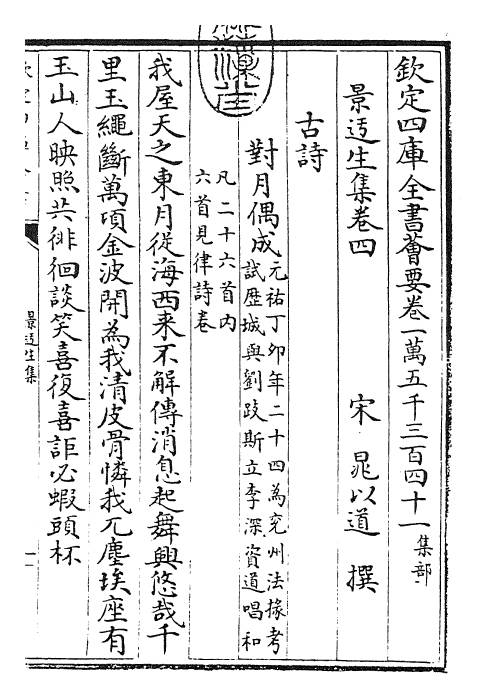 欽定四庫全書薈要卷一萬五千三百四十一集部
景迃生集卷四
宋 晁以道 撰
古詩
對月偶成元祐丁卯年二十四為兖州法掾考
試歴城與劉跂斯立李深資道唱和
凡二十六首内
六首見律詩卷
我屋天之東月從海西來不解傳消息起舞興悠哉千
里玉繩斷萬頃金波開為我清皮骨憐我兀塵埃座有
玉山人映照共徘徊談笑喜復喜詎必蝦頭杯
景迃生集
一